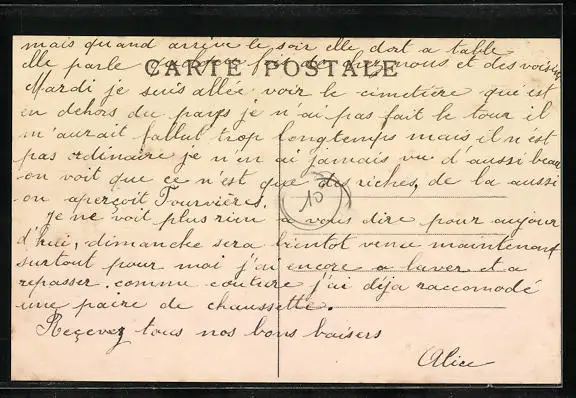 mais quand arrive le soir elle dort a table
elle parle de chez nous et des voisins
CARTE POSTALE
Mardi je suis allée voir le cimetière qui est
en dehors du pays je n'ai pas fait le tour il
m'aurait fallut trop longtemps mais il n'est
pas ordinaire je n'en ai jamais vu d'aussi beau
on voit que ce n'est que des riches, de la aussi
on aperçoit Fourvières.
10
Je ne voit plus rien a vous dire pour aujour
d'hui, dimanche sera bientot venu maintenant
surtout pour moi j'ai encore a laver et a
repasser. comme couture j'ai déja raccomodé
une paire de chaussette.
Reçevez tous nos bons baisers
Alice